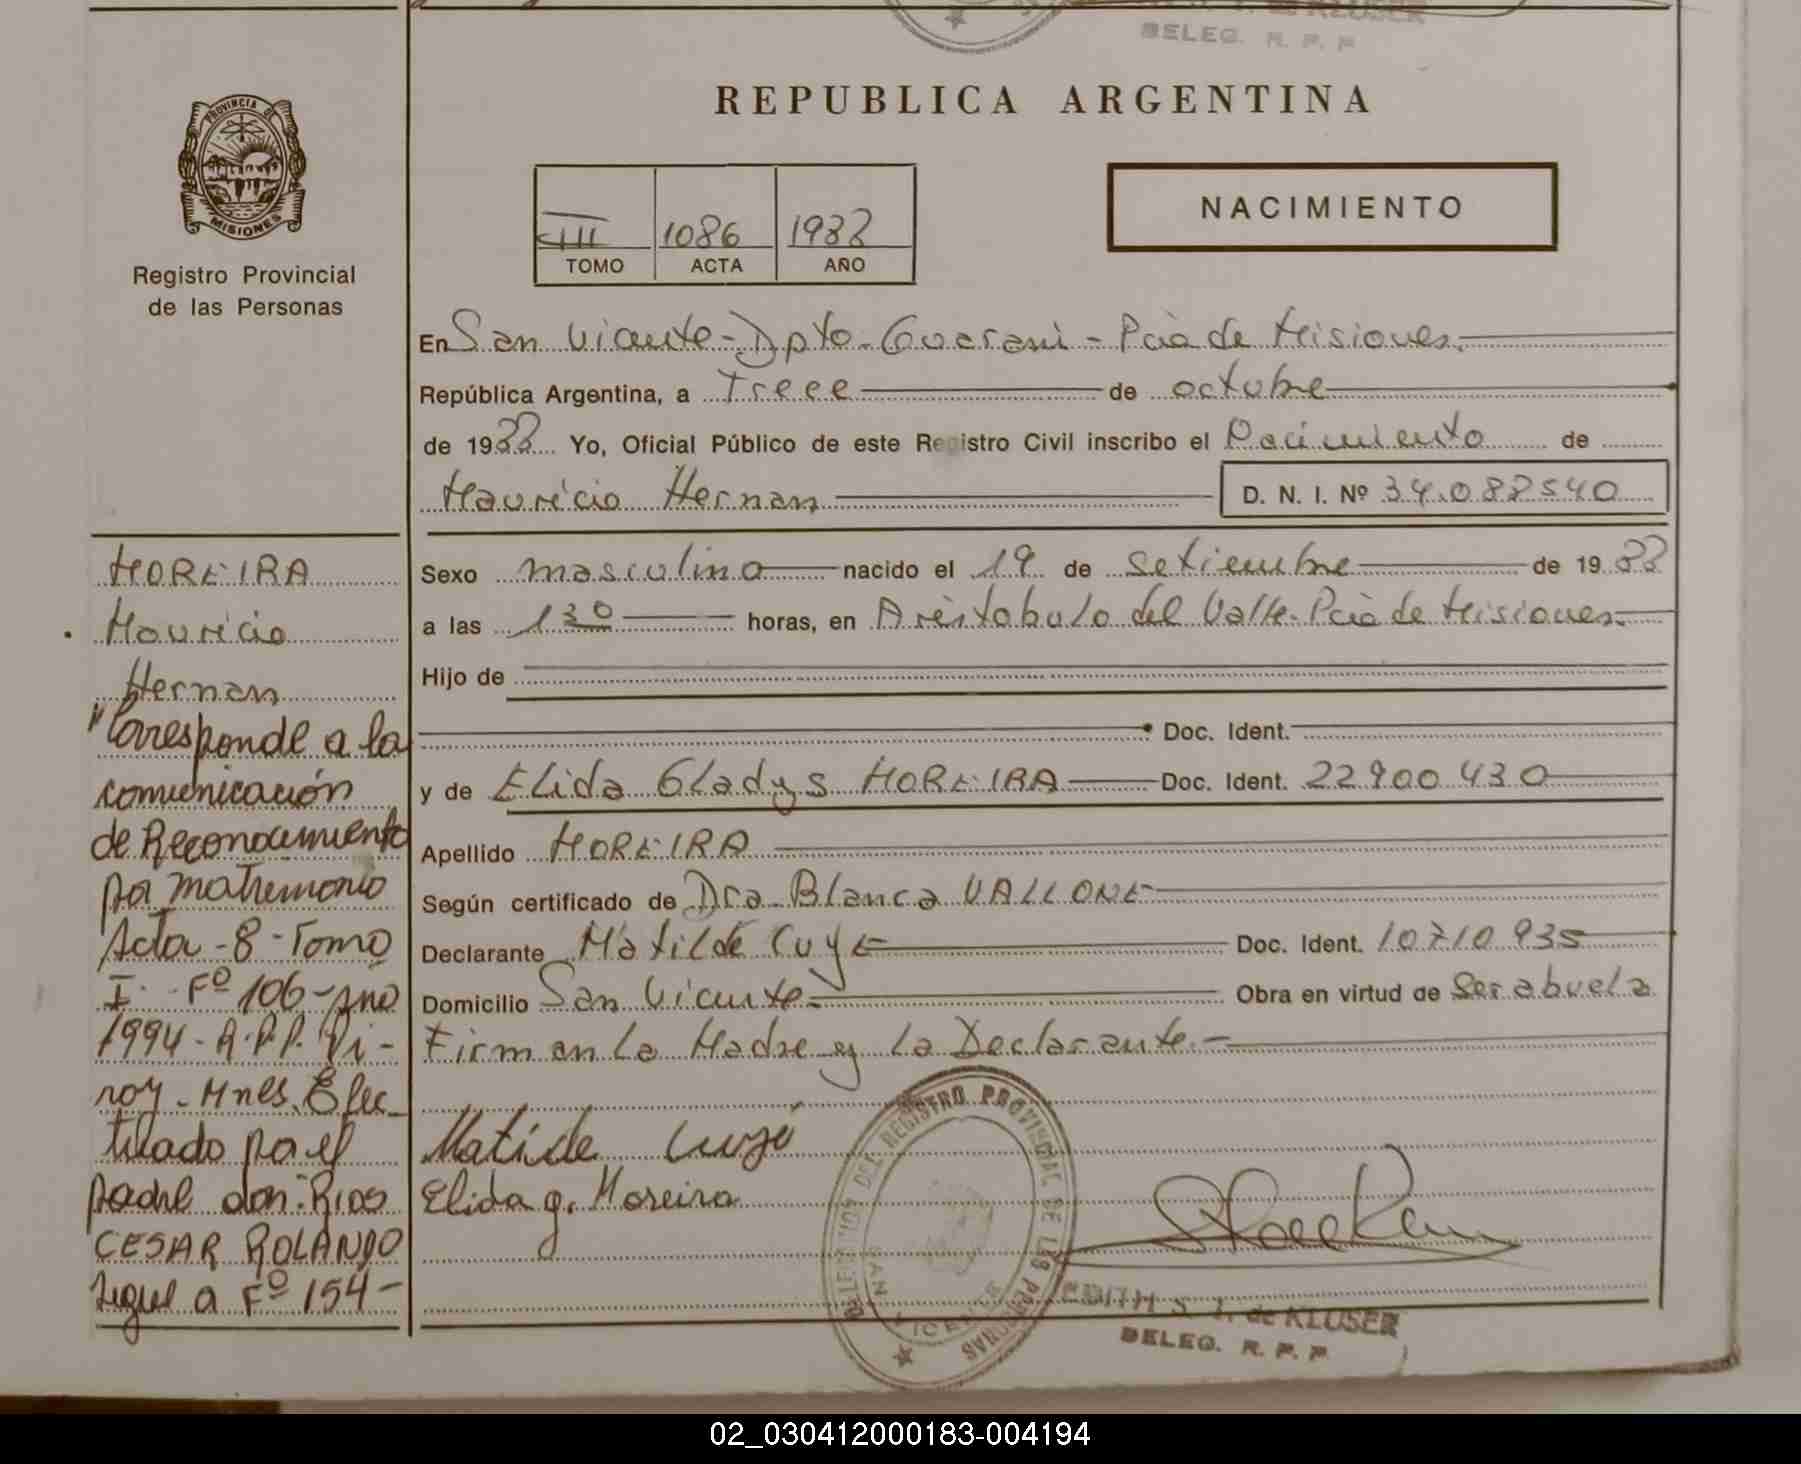 de KLUSER
DELEG. R. P. P
PROVINCIA DE
MISIONES
Registro Provincial
de las Personas
REPUBLICA ARGENTINA
III 1086 1988
TOMO ACTA AÑO
NACIMIENTO
En San Vicente - Dpto. Guarani - Pcia de Misiones.
República Argentina, a Trece de octubre
de 1988 Yo, Oficial Público de este Registro Civil inscribo el Nacimiento de
Mauricio Hernan D. N. I. Nº 34.088540
Sexo masculino nacido el 19 de setiembre de 1988
a las 1 30 horas, en Aristobulo del Valle. Pcia de Misiones.
Hijo de
Doc. Ident.
y de Elida Gladys MOREIRA Doc. Ident. 22900430
Apellido MOREIRA
Según certificado de Dra. Blanca VALLONE
Declarante Matilde Cuye Doc. Ident. 10710935
Domicilio San Vicente Obra en virtud de Ser abuela
Firman la Madre y la Declarante.
Matilde
Elida g. Moreira
MOREIRA
Mauricio
Hernan
"Corresponde a la
comunicación
de Reconocimiento
por matrimonio
Acta - 8 - Tomo
I - Fº 106 - año
1994 - R.P.P. Pi-
ray - Mnes. Efec-
tuado por el
padre don: Rios
CESAR ROLANDO
sigue a Fº 154 -
DEL REGISTRO PROVINCIAL DE LAS PERSONAS
SAN VICENTE
EDITH S. I. de KLUSER
DELEG. R. P. P
02_030412000183-004194